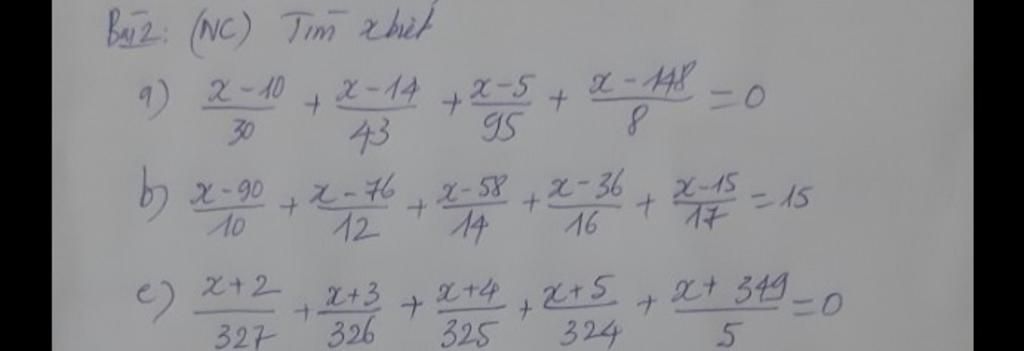 Bài 2: (NC) Tìm x biết
a) x-10/30 + x-14/43 + x-5/95 + x-148/8 = 0
b) x-90/10 + x-76/12 + x-58/14 + x-36/16 + x-15/17 = 15
c) x+2/327 + x+3/326 + x+4/325 + x+5/324 + x+349/5 = 0